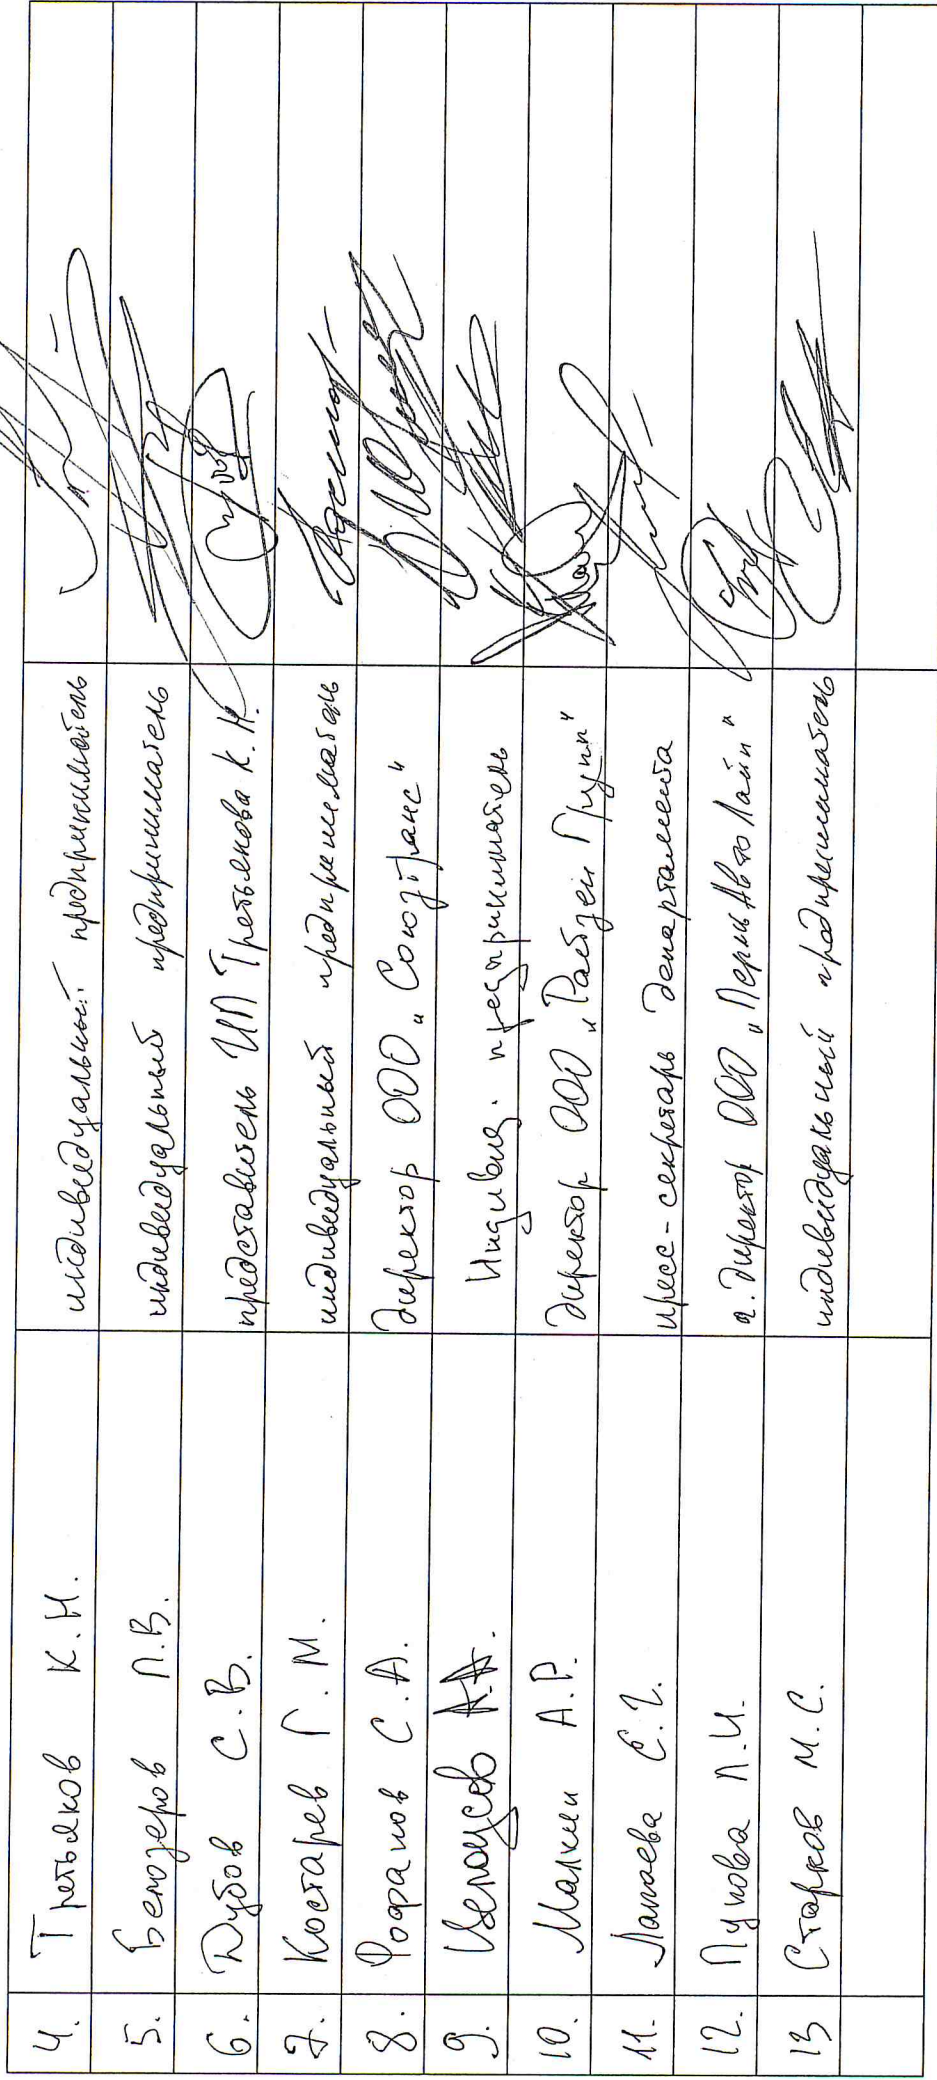 4. Третьяков К.Н. индивидуальный предприниматель
5. Белозеров П.В. индивидуальный предприниматель
6. Дубов С.В. представитель ИП Третьякова К.Н.
7. Костарев Г.М. индивидуальный предприниматель
8. Фофанов С.А. директор ООО „Союзтранс"
9. Индивид. предприниматель
10. Малкин А.Р. директор ООО „Рабзей Групп"
11. Лапаева Е.Г. пресс-секретарь департамента
12. Пунова Л.И. г. директор ООО „ПермьАвтоЛайн"
13 Старков М.С. индивидуальный предприниматель